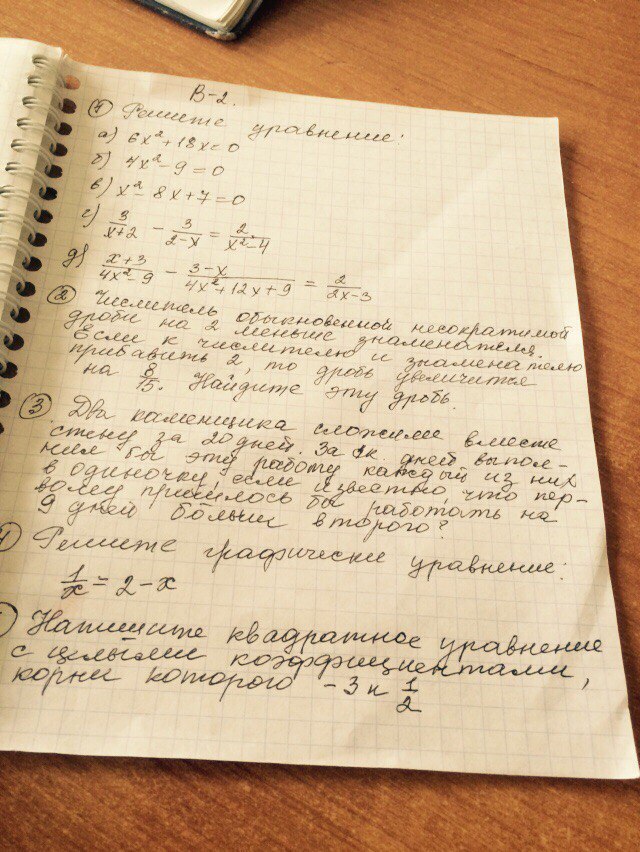 В-2.
① Решите уравнение:
а) 6x² + 18x = 0
б) 4x² - 9 = 0
в) x² - 8x + 7 = 0
с) 3/(x+2) - 3/(2-x) = 2/(x²-4)
д) (x+3)/(4x²-9) - (3-x)/(4x²+12x+9) = 2/(2x-3)
② Числитель обыкновенной несократимой
дроби на 2 меньше знаменателя.
Если к числителю и знаменателю
прибавить 2, то дробь увеличится
на 8/15. Найдите эту дробь.
③ Два каменщика сложили вместе
стену за 20 дней. За ск. дней выпол-
нил бы эту работу каждый из них
в одиночку, если известно, что пер-
вому пришлось бы работать на
9 дней больше второго?
Решите графически уравнение:
1/x = 2 - x
Напишите квадратное уравнение
с целыми коэффициентами,
корни которого -3 и 1/2